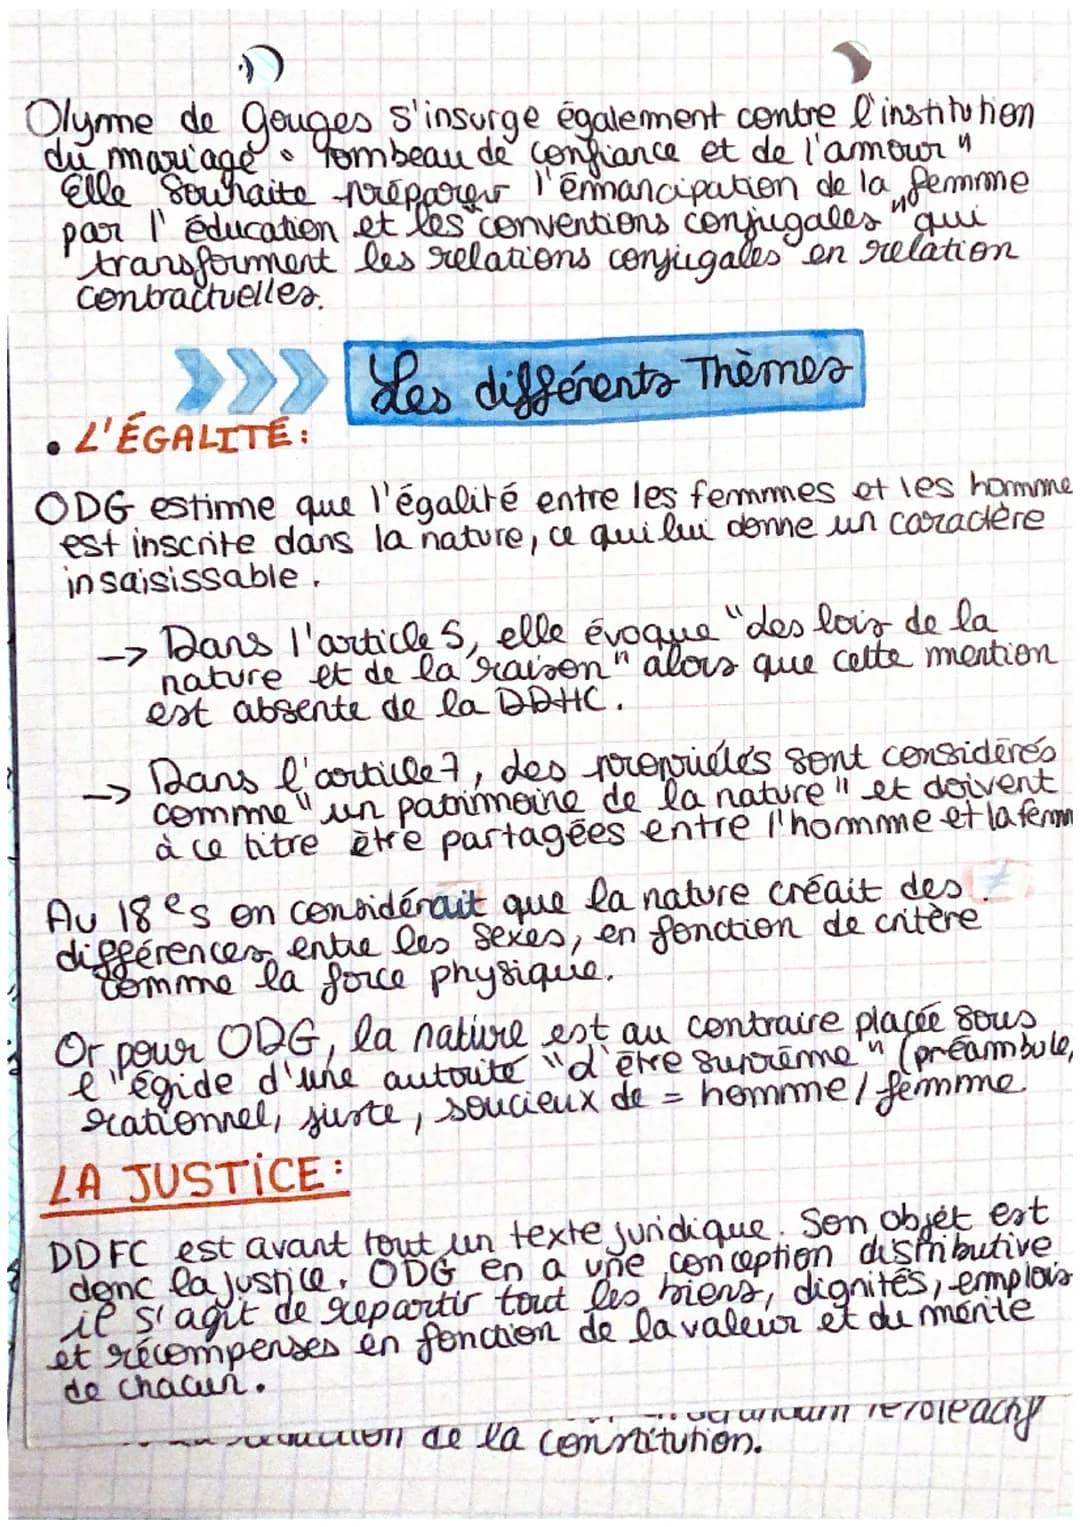 Olyme de Gouges s'insurge également contre l'institution
du mariage " Tombeau de confiance et de l'amour "
Elle souhaite préparer l'émancipation de la femme
par l'éducation et les "conventions conjugales" qui
transforment les relations conjugales en relation
contractuelles.
Les différents Thèmes
• L'ÉGALITÉ :
ODG estime que l'égalité entre les femmes et les homme
est inscrite dans la nature, ce qui lui donne un caractère
insaisissable.
→ Dans l'article 5, elle évoque "des lois de la
nature et de la raison" alors que cette mention
est absente de la DDHC.
→ Dans l'article 7, des propriétés sont considérés
comme "un patrimoine de la nature" et doivent
à ce titre être partagées entre l'homme et la femm
Au 18es on considérait que la nature créait des ≠
différences entre les sexes, en fonction de critère
comme la force physique.
Or pour ODG, la nature est au contraire placée sous
l'égide d'une autorité "d'être suprême" (préambule,
rationnel, juste, soucieux de = homme / femme
LA JUSTICE :
DDFC est avant tout un texte juridique. Son objet est
donc la justice. ODG en a une conception distributive
il s'agit de repartir tout les biens, dignités, emplois
et récompenses en fonction de la valeur et du mérite
de chacun.
de la constitution.